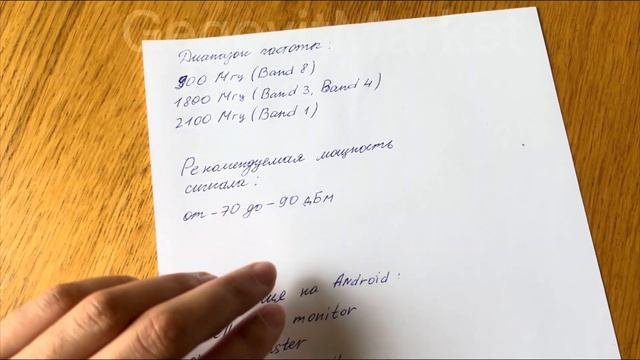 GegovitMarket
Диапазон частоты:
900 Мгц (Band 8)
1800 Мгц (Band 3, Band 4)
2100 Мгц (Band 1)
Рекомендуемая мощность
сигнала:
от -70 до -90 дБм
на Android:
monitor